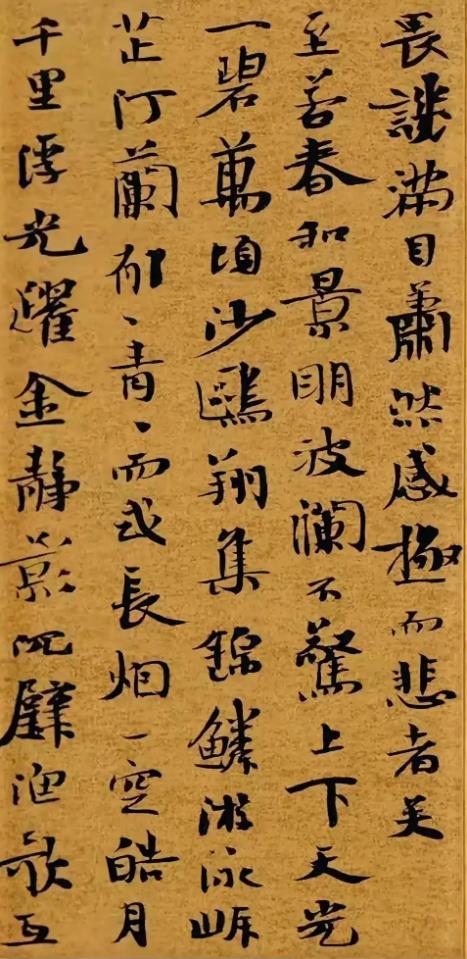 畏譏滿目蕭然感極而悲者矣
至若春和景明波瀾不驚上下天光
一碧萬頃沙鷗翔集錦鱗游泳岸
芷汀蘭郁〻青〻而或長烟一空皓月
千里浮光躍金静影沉璧漁歌互